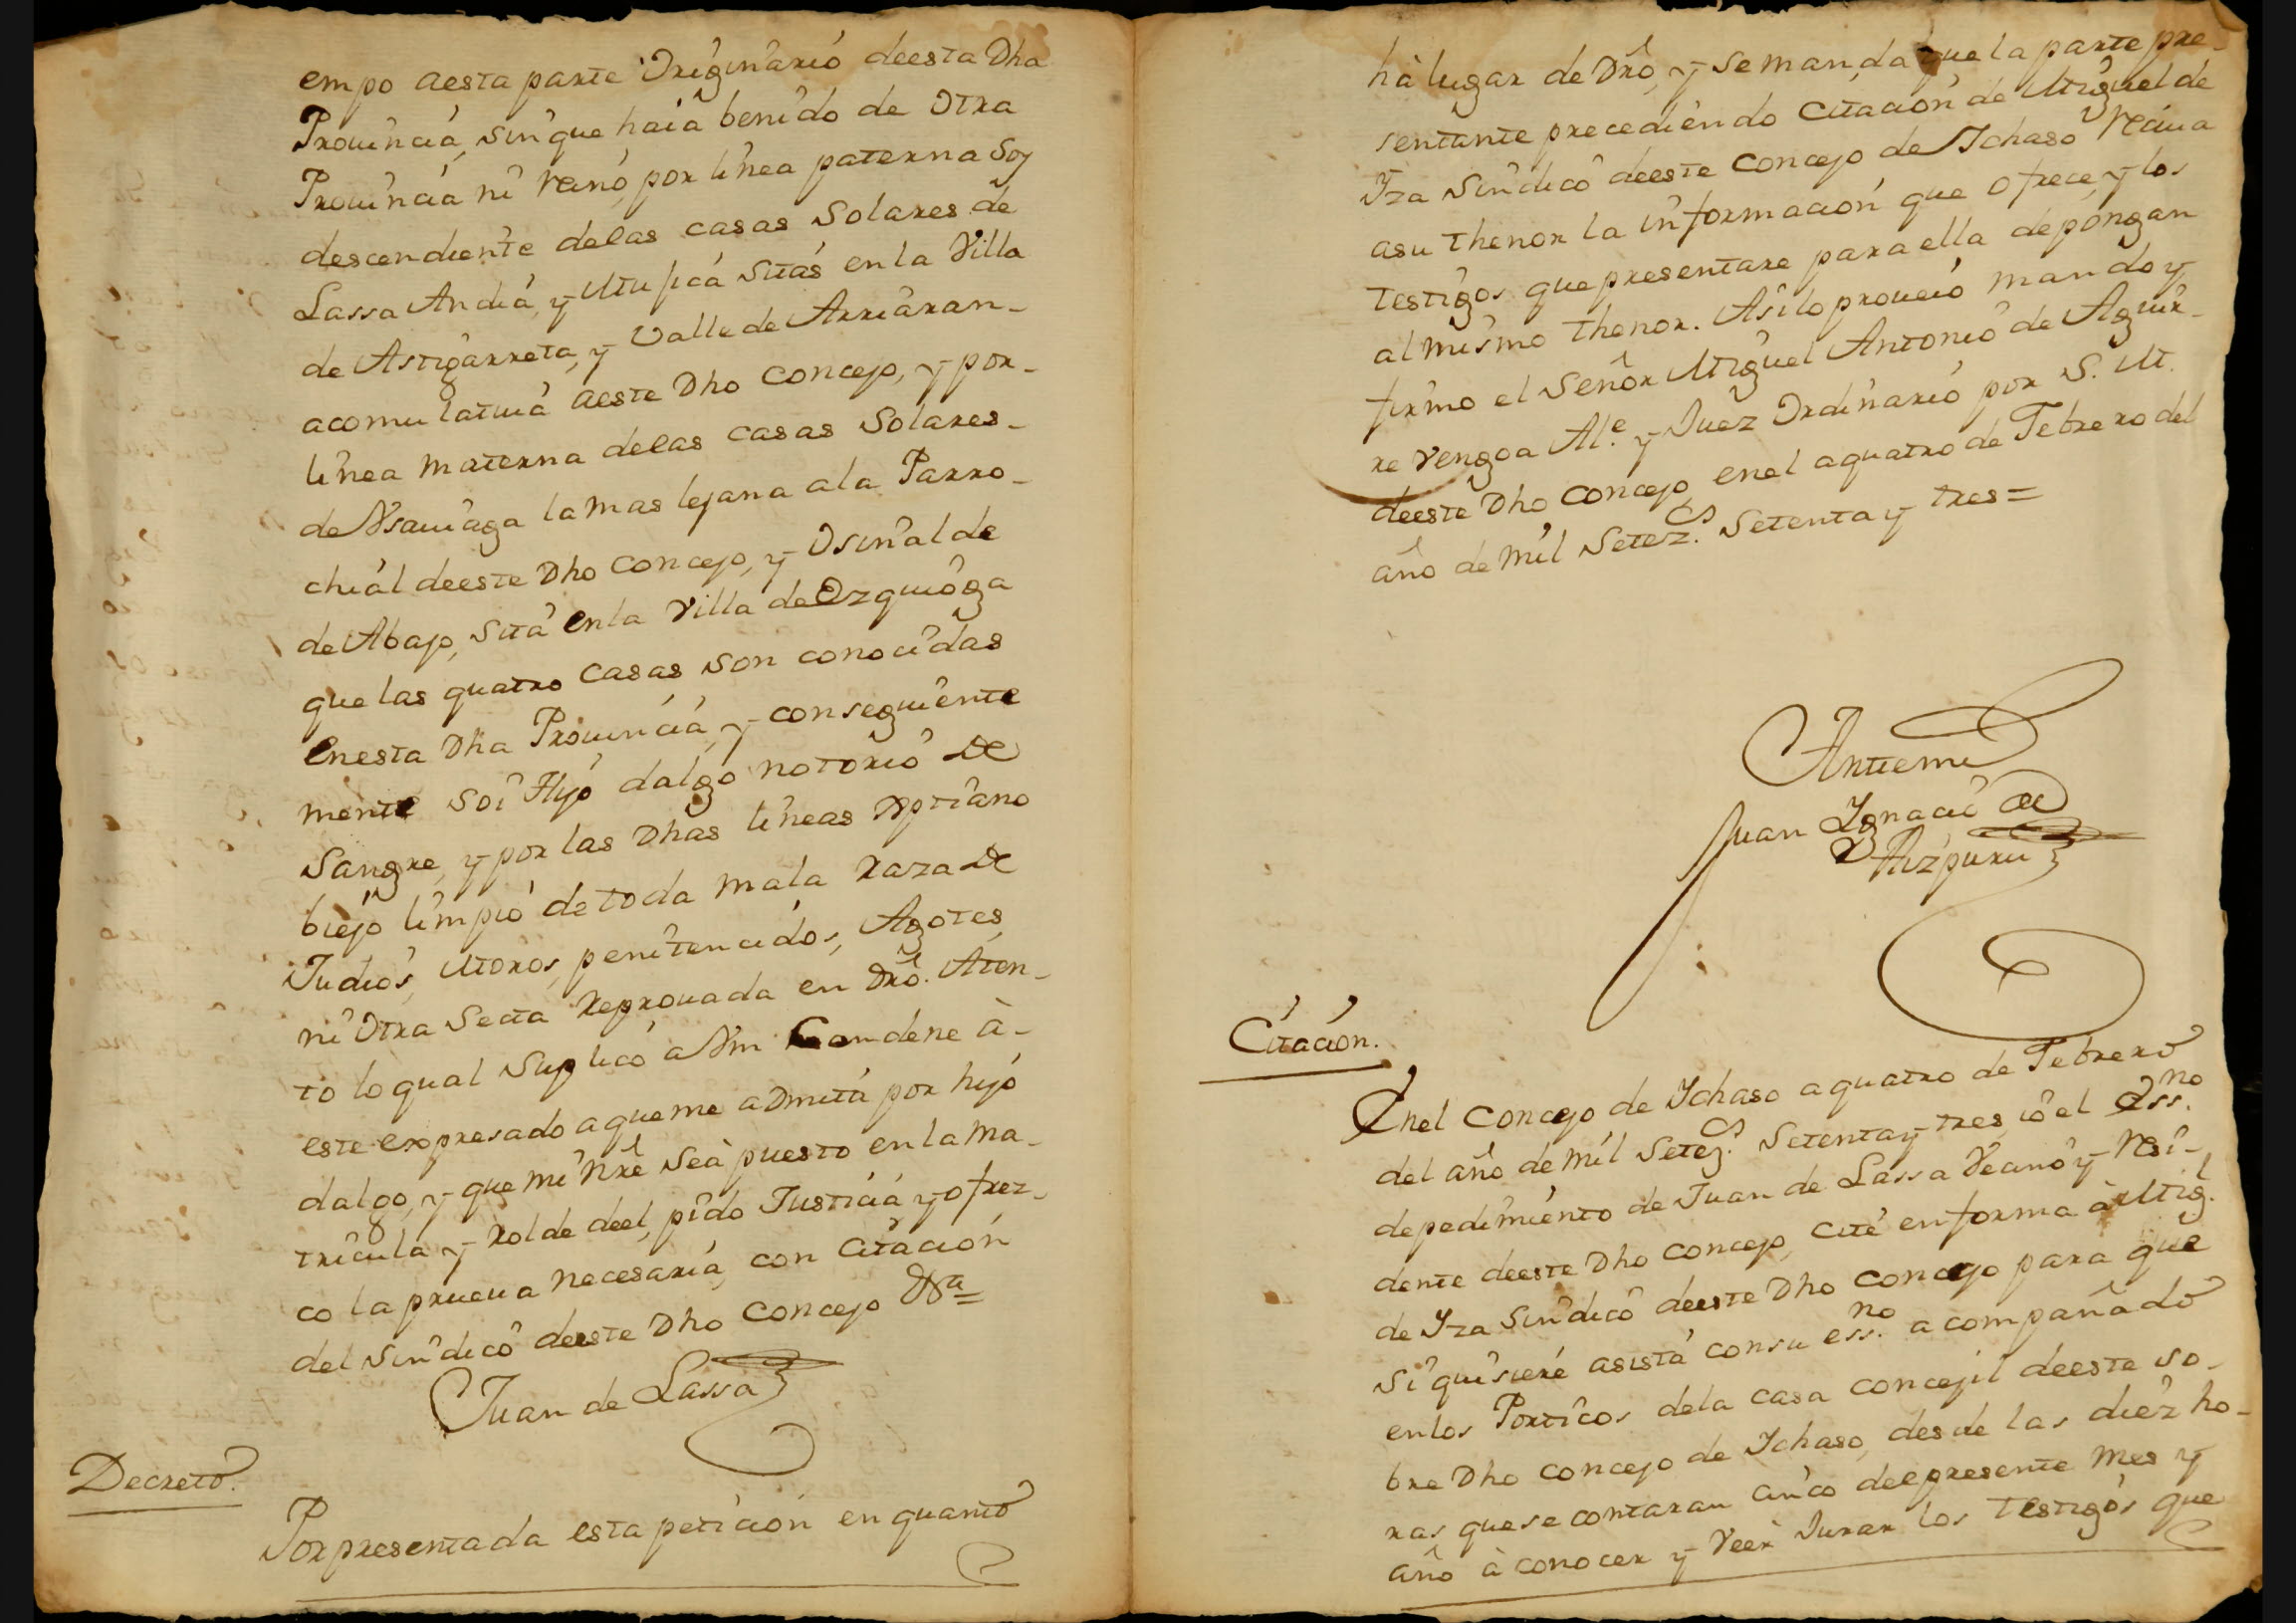 empo aesta parte Originario deesta Dha
Prouincia, sin que haia benido de otra
Prouincia ni reino, por linea paterna Soy
descendiente delas casas Solares de
Lassa Andia, y Mujica sitas en la Villa
de Astigarreta, y Valle de Arriaran-
acomulatiua aeste Dho Concejo, y por-
linea materna delas casas Solares-
de Vsauiaga la mas lejana ala Parro-
chial deeste Dho Concejo, y Osinalde
de Abajo, sita en la Villa de Ezquioga
que las quatro casas son conocidas
enesta Dha Prouincia, y consequiente
mente soi Hijo dalgo notorio de
Sangre, y por las Dhas lineas xptiano
biejo limpio de toda mala raza de
Judios, Moros, penitenciados, Agotes,
ni otra Secta reprouada en dro. Aten-
to lo qual Suplico a Vm Condene à-
este expresado aque me admita por hijo
dalgo, y que mi nre seà puesto en la ma-
tricula y rolde deel, pido Justicia y ofrez-
co la prueua necesaria, con Citacion
del Sindico deeste Dho Concejo Vª=
Juan de Lassa
Decreto.
Por presentada esta peticion en quanto
hà lugar de Dro, y se manda que la parte pre-
sentante precediendo Citacion de Miguel de
Yza Sindico deeste Concejo de Ichaso reciua
asu thenor la informacion que ofrece, y los
testigos que presentare para ella depongan
al mismo thenor. Asilo proueió mando y
firmo el Señor Miguel Antonio de Aguir-
re vengoa Ale. y Juez Ordinario por S. M.
deeste Dho Concejo, enel aquatro de Febrero del
año de mil Setezs. Setenta y tres=
Antemi
Juan Ygnacio de
Aizpuru
Citacion.
Enel Concejo de Ichaso aquatro de Febrero
del año de mil Setezs. Setenta y tres, io el Essno.
depedimiento de Juan de Lassa Vecino y resi-
dente deeste Dho Concejo, Cité en forma à Migl.
de Yza Sindico deeste Dho Concejo para que
si quisiere asista consu essno. acompañado
enlos Porticos dela casa concejil deeste so-
bre Dho Concejo de Ichaso, desde las diez ho-
ras que se contaran cinco deel presente mes y
año à conocer y veer Jurar los testigos que